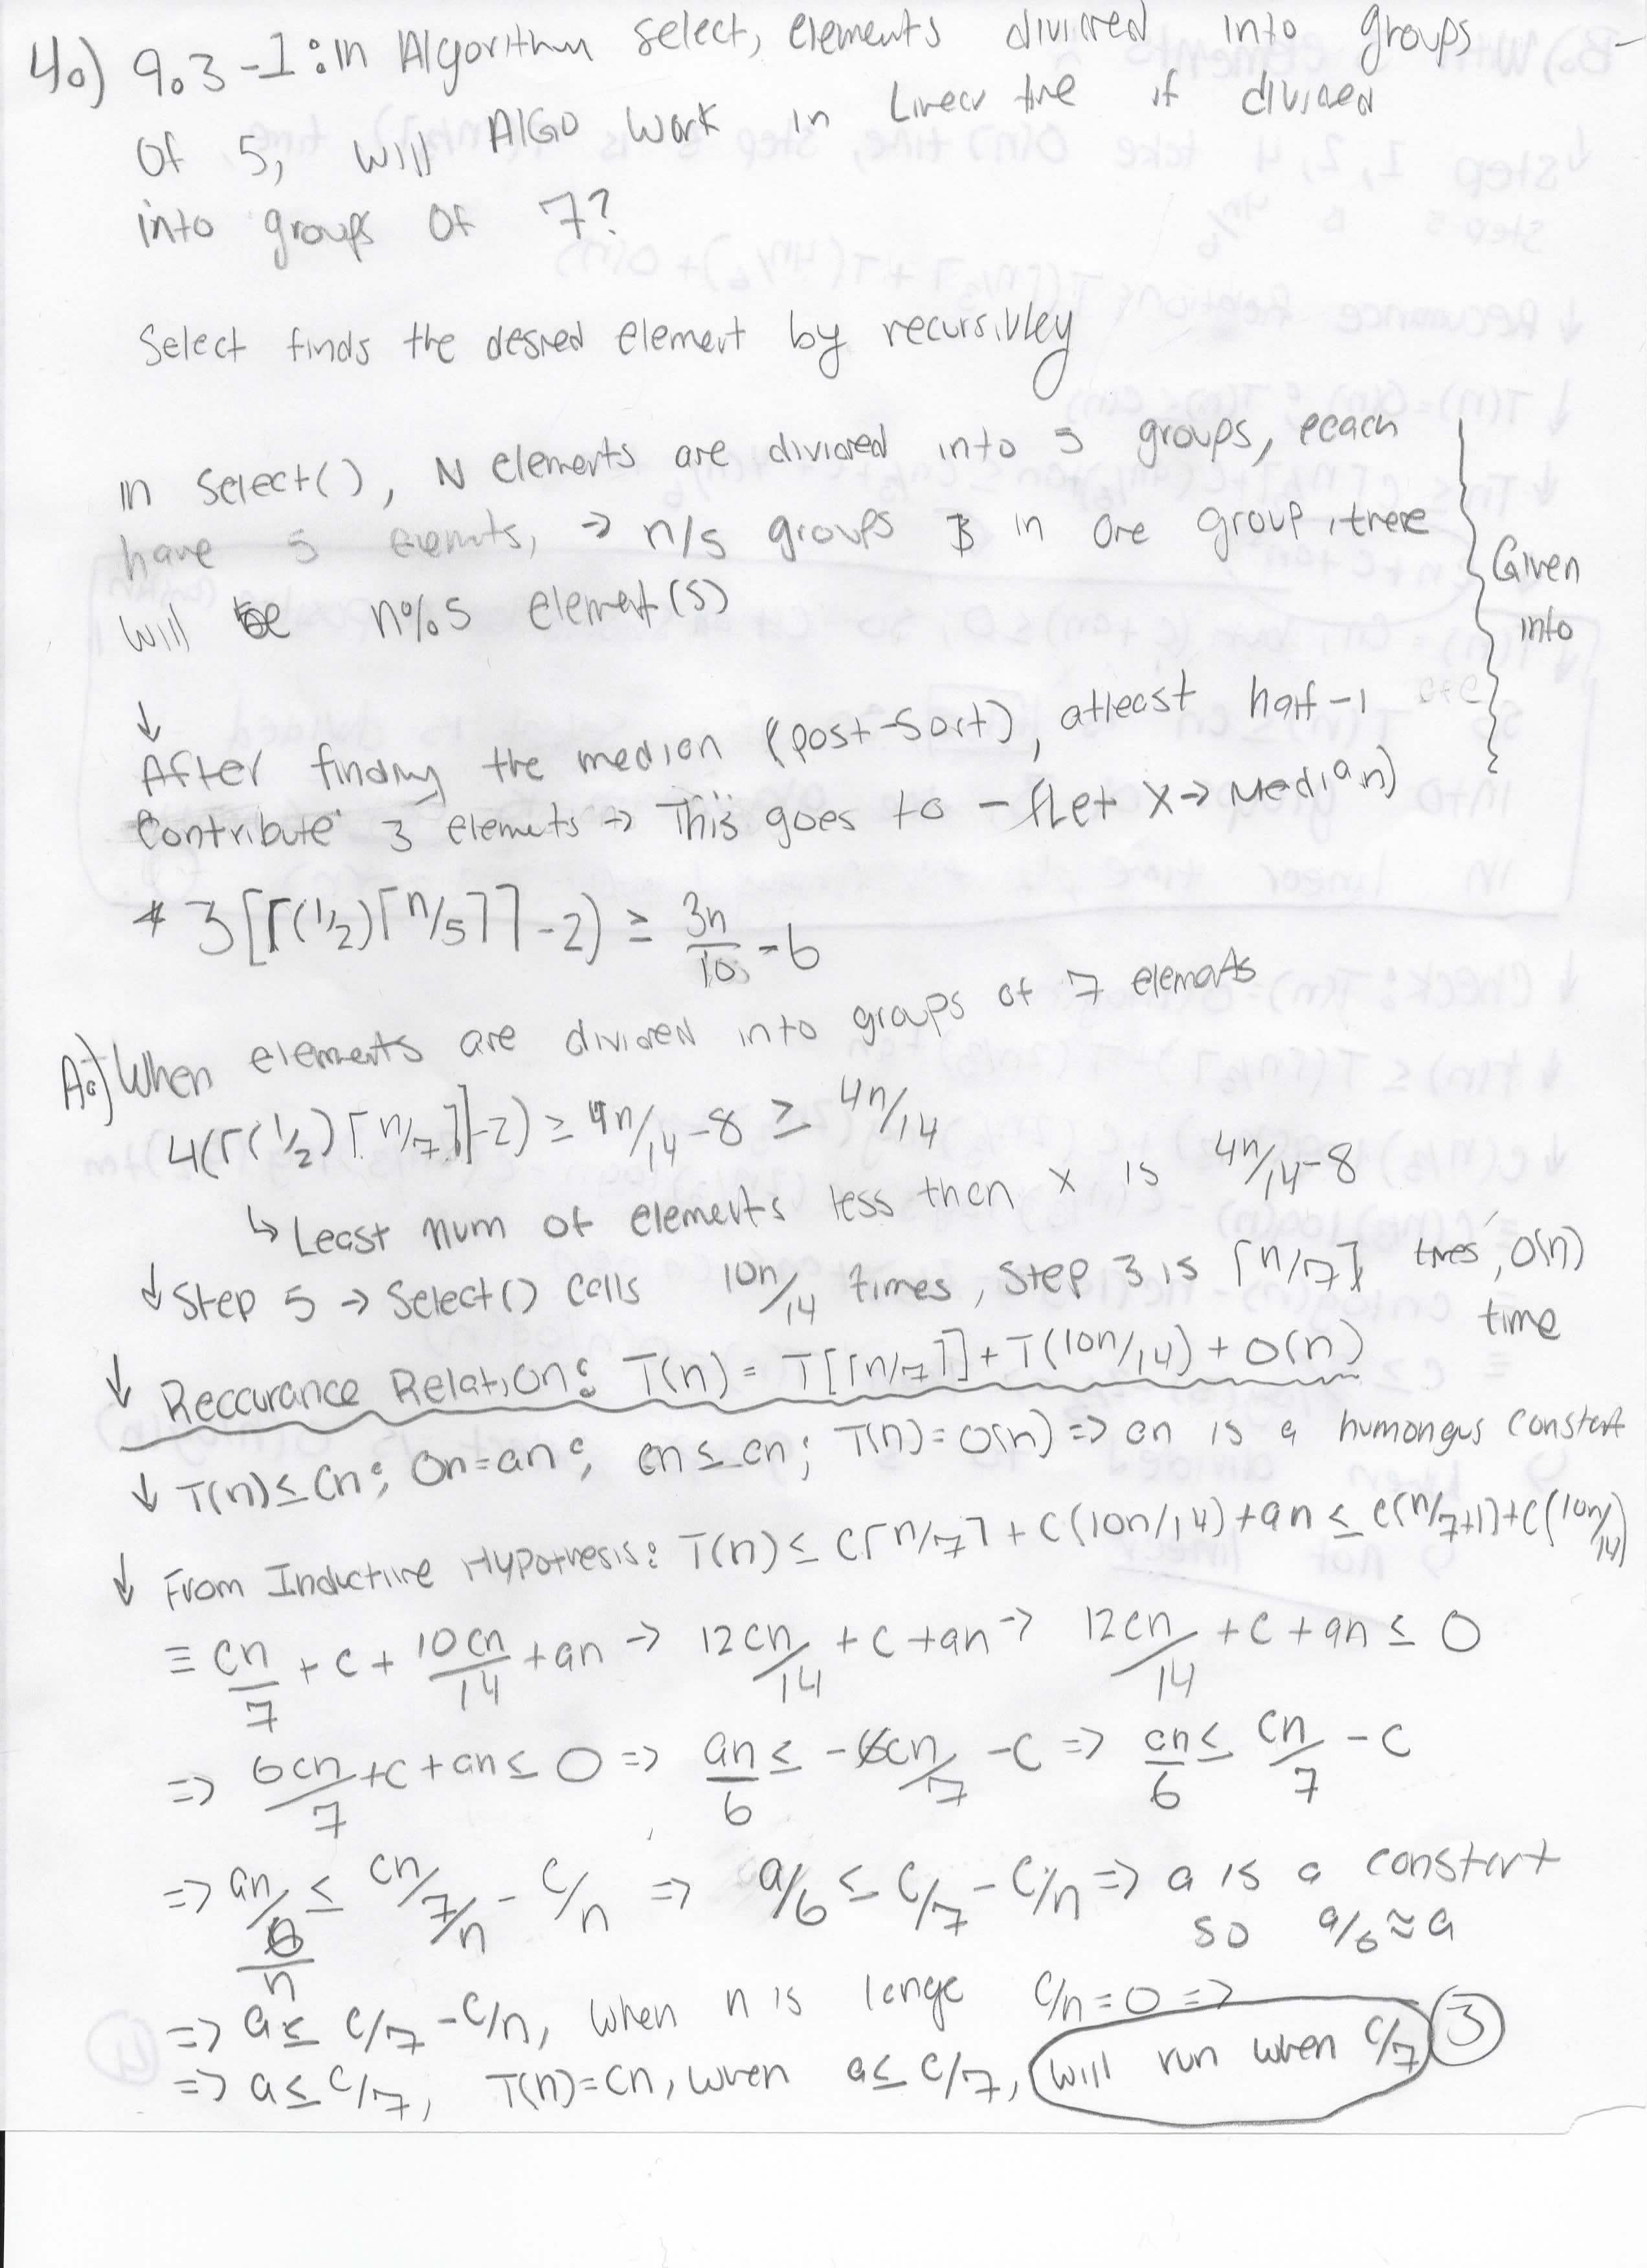 4.) 9.3-1: in Algorithm select, elements divided into groups
of 5, will AlGO work in Linear time if divided
into groups of 7?
Select finds the desired element by recursivley
in Select(), N elements are divided into 5 groups, eeach
have 5 elements, → n/5 groups & in one group, there
will be n%5 element(s)
Given
into
↓
After finding the median (post-sort), atleast half-1
Contribute 3 elements → This goes to - (Let X→ Median)
* 3[⌈(1/2)⌈n/5⌉⌉-2) ≥ 3n/10 - 6
A.) When elements are divided into groups of 7 elements
4(⌈(1/2)⌈n/7⌉⌉-2) ≥ 4n/14-8 ≥ 4n/14
↳ Least num of elements less then x is 4n/14-8
↓ Step 5 → Select() calls 10n/14 times, Step 3 is ⌈n/7⌉ times, O(n)
time
↓ Reccurance Relation: T(n) = T[⌈n/7⌉] + T(10n/14) + O(n)
↓ T(n) ≤ Cn; On=an; cn ≤ cn; T(n)=O(n) => cn is a humongus constant
↓ From Inductive Hypothesis: T(n) ≤ C⌈n/7⌉ + C(10n/14) + an ≤ C(n/7+1)+C(10n/14)
≡ cn/7 + c + 10cn/14 + an → 12cn/14 + c + an → 12cn/14 + c + an ≤ 0
=> 6cn/7 + c + an ≤ 0 => an/6 ≤ -6cn/7 - c => cn/6 ≤ cn/7 - c
=> an/6/n ≤ cn/7/n - c/n => a/6 ≤ c/7 - c/n => a is a constant
so a/6 ≈ a
=> a ≤ c/7 - c/n, when n is large c/n = 0 =>
=> a ≤ c/7, T(n)=Cn, when a ≤ c/7, will run when c/7 3